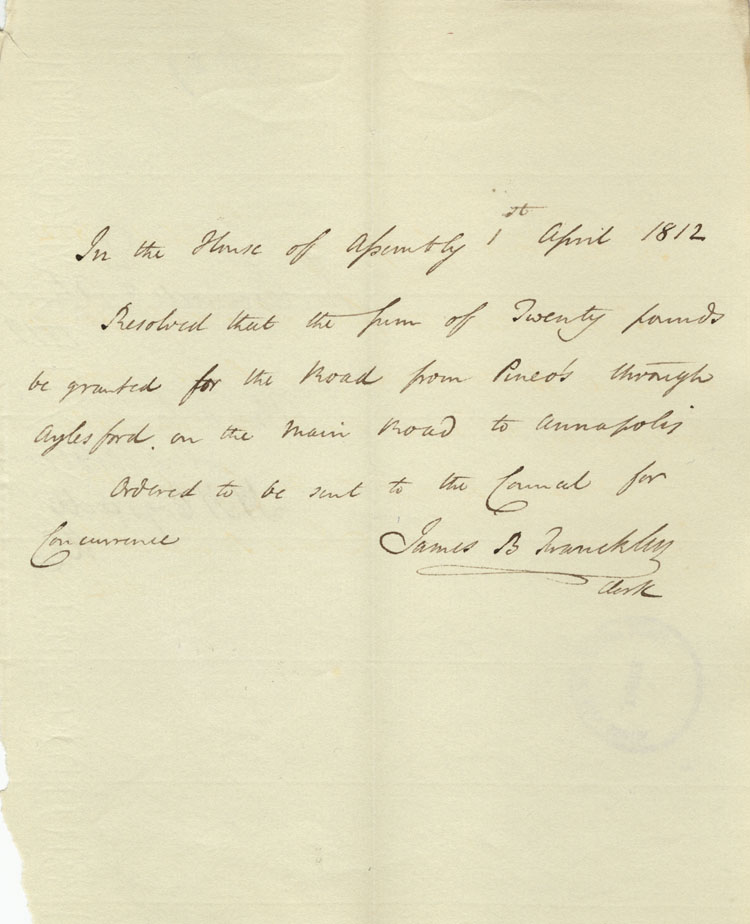 In the House of Assembly 1st April 1812
Resolved that the sum of Twenty pounds
be granted for the Road from Pineo's through
Aylesford. on the Main Road to Annapolis
Ordered to be sent to the Council for
Concurrence James B Franckley
Clerk